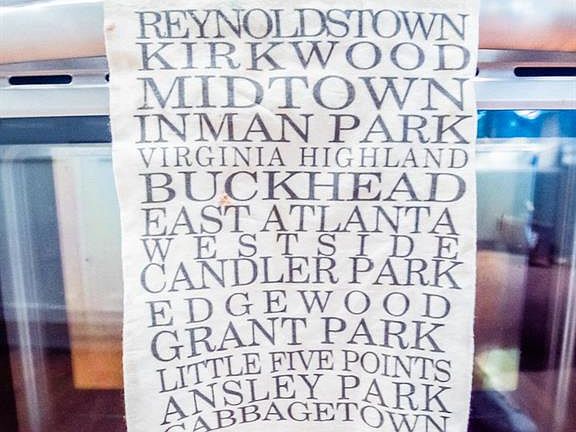 REYNOLDSTOWN
KIRKWOOD
MIDTOWN
INMAN PARK
VIRGINIA HIGHLAND
BUCKHEAD
EAST ATLANTA
WESTSIDE
CANDLER PARK
EDGEWOOD
GRANT PARK
LITTLE FIVE POINTS
ANSLEY PARK
CABBAGETOWN